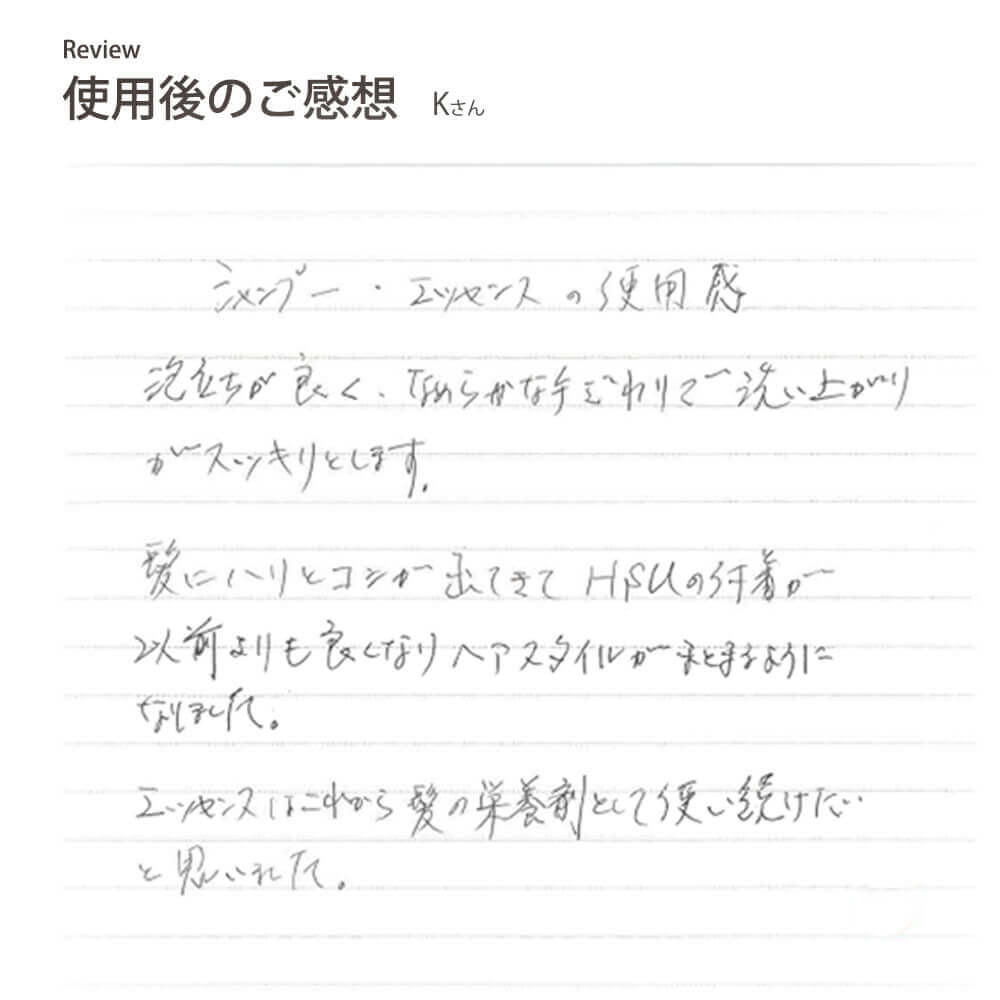 Review
使用後のご感想 Kさん
シャンプー・エッセンスの使用感
泡立ちが良く、なめらかな手ざわりで洗い上がり
がスッキリとします。
髪にハリとコシが出てきてHSUの付着が
以前よりも良くなりヘアスタイルがまとまるように
なりました。
エッセンスはこれから髪の栄養剤として使い続けたい
と思いました。